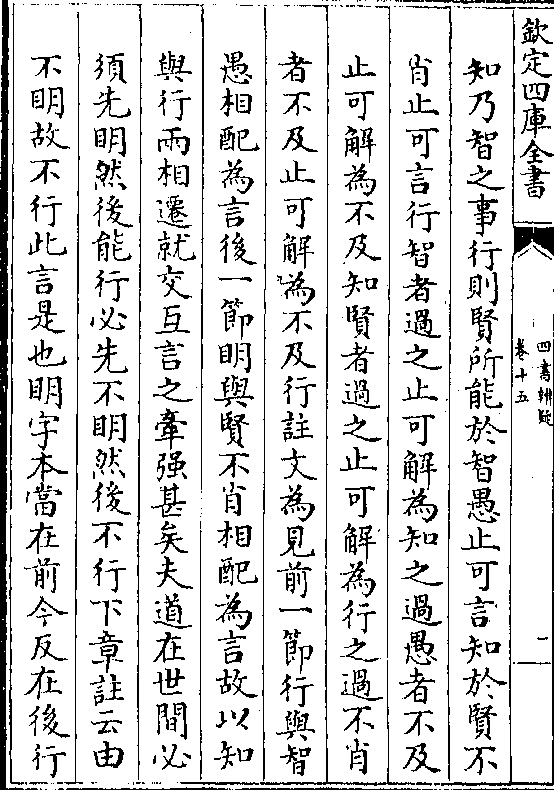 欽定四庫全書
四書辨疑
卷十五
二
知乃智之事行則賢所能於智愚止可言知於賢不
肖止可言行智者過之止可解為知之過愚者不及
止可解為不及知賢者過之止可解為行之過不肖
者不及止可解為不及行註文為見前一節行與智
愚相配為言後一節明與賢不肖相配為言故以知
與行兩相遷就交互言之牽强甚矣夫道在世間必
須先明然後能行必先不明然後不行下章註云由
不明故不行此言是也明字本當在前今反在後行